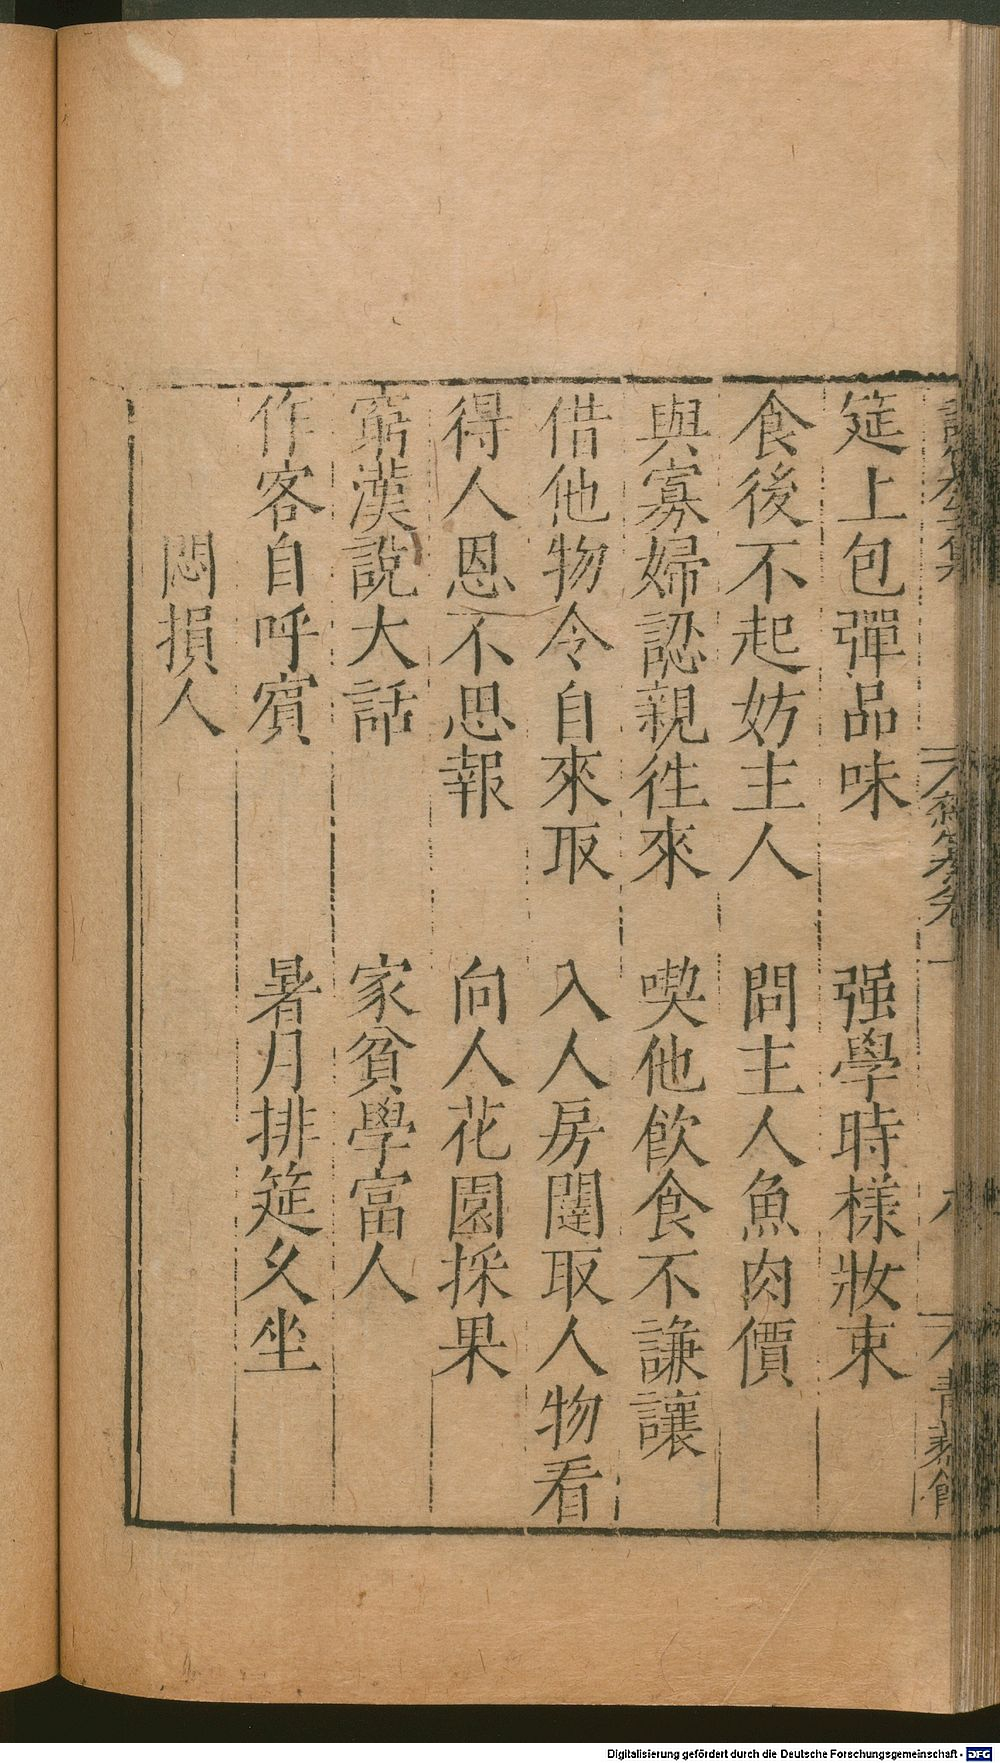 筵上包彈品味　强學時樣妝束
食後不起妨主人　問主人魚肉價
與寡婦認親徃來　喫他飲食不謙讓
借他物令自來取　入人房闥取人物看
得人恩不思報　向人花園採果
窮漢說大話　家貧學富人
作客自呼賓　暑月排筵久坐
悶損人
Digitalisierung gefördert durch die Deutsche Forschungsgemeinschaft - DFG